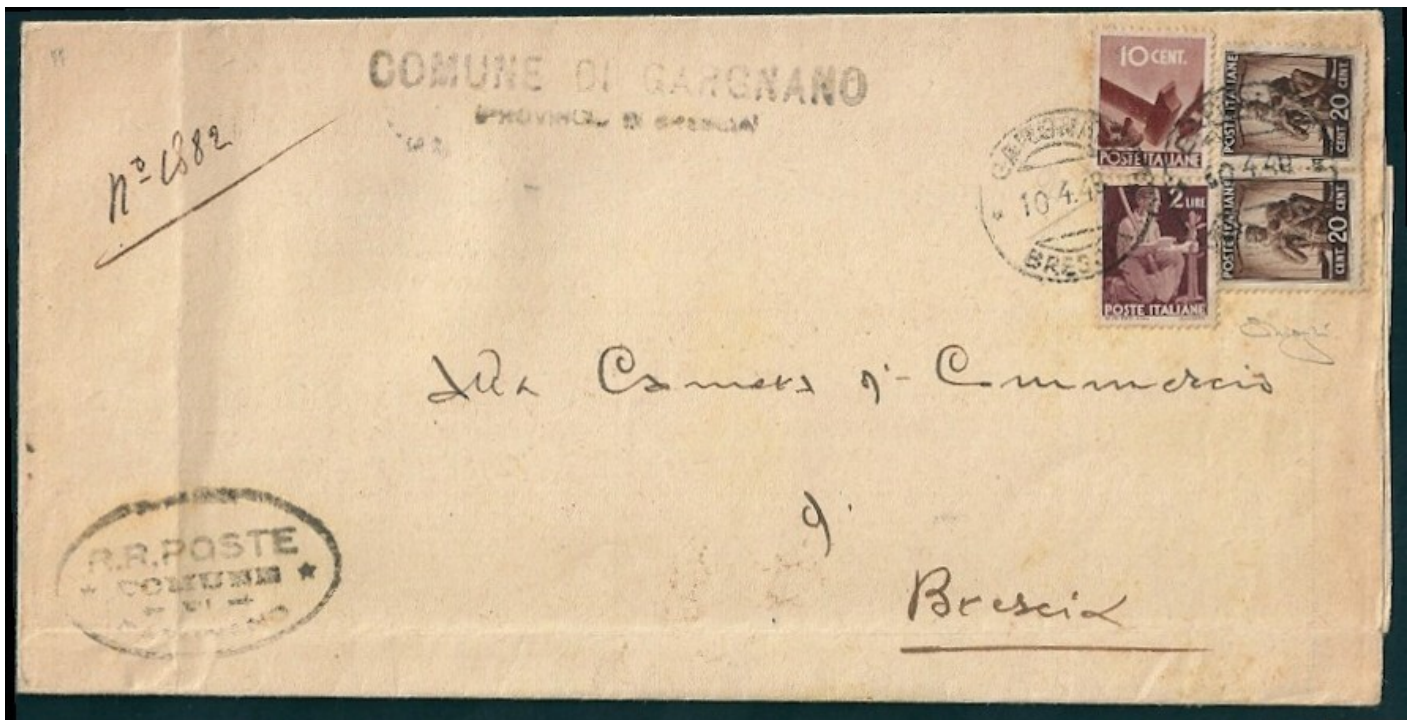 COMUNE DI GARGNANO
(PROVINCIA DI BRESCIA)
Nº 1882
10 CENT.
POSTE ITALIANE
2 LIRE
POSTE ITALIANE
POSTE ITALIANE
CENT 20 CENT
POSTE ITALIANE
CENT 20 CENT
10.4.48
BRESCIA
Alla Camera di Commercio
di
Brescia
R.R. POSTE
COMUNE
DI
GARGNANO